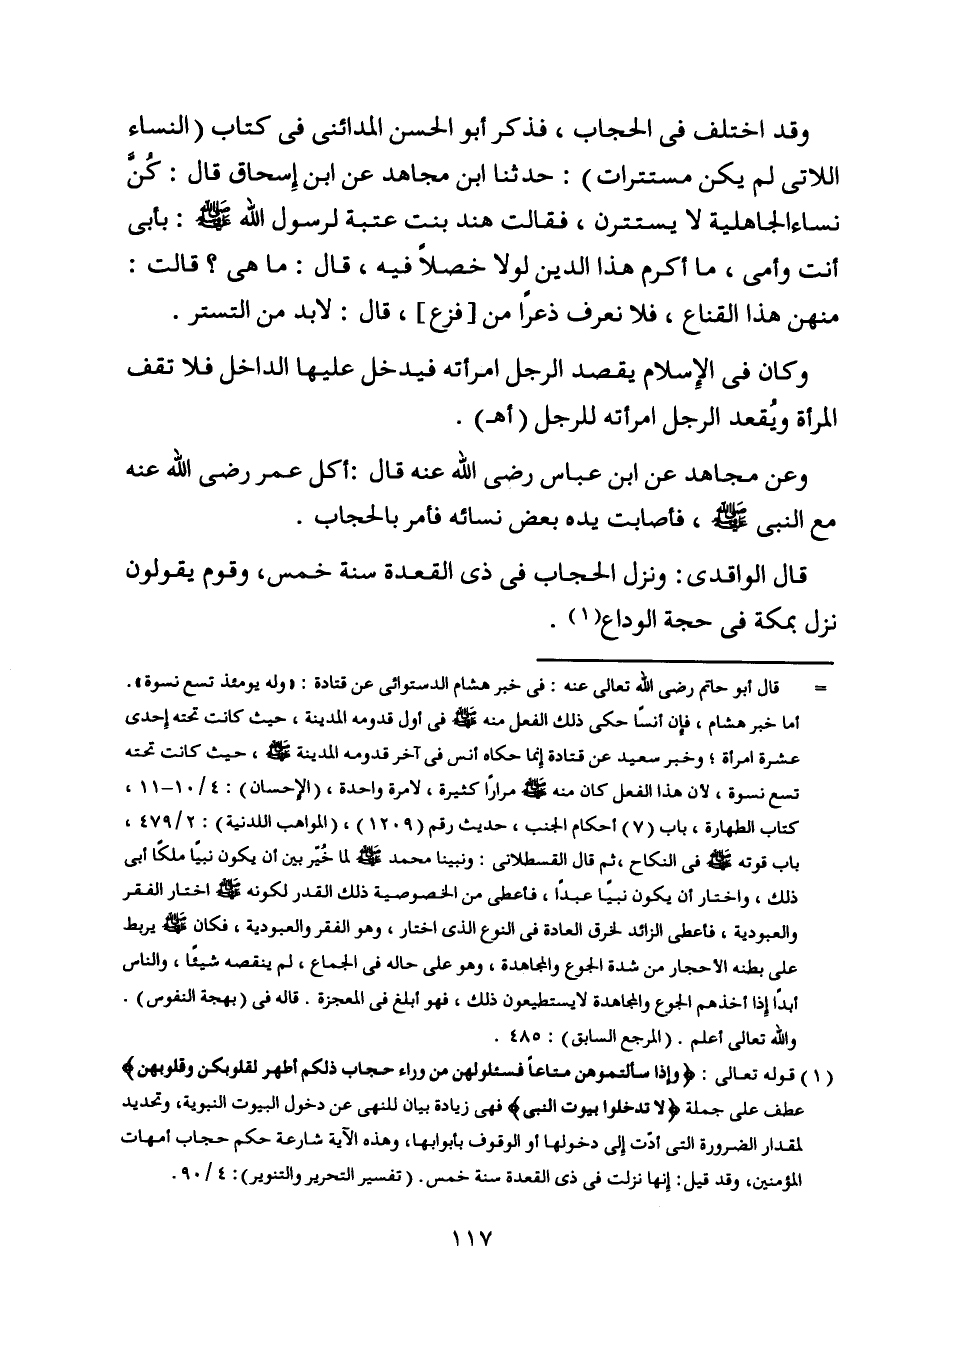 وقد اختلف فى الحجاب ، فذكر أبو الحسن المدائنى فى كتاب (النساء
اللاتى لم يكن مستترات) : حدثنا ابن مجاهد عن ابن إسحاق قال : كُنَّ
نساءالجاهلية لا يستترن ، فقالت هند بنت عتبة لرسول الله ﷺ : بأبى
أنت وأمى ، ما أكرم هذا الدين لولا خصلاً فيه ، قال : ما هى ؟ قالت :
منهن هذا القناع ، فلا نعرف ذعرًا من [فزع] ، قال : لابد من التستر .
وكان فى الإسلام يقصد الرجل امرأته فيدخل عليها الداخل فلا تقف
المرأة ويُقعد الرجل امرأته للرجل (أهـ) .
وعن مجاهد عن ابن عباس رضى الله عنه قال :أكل عمر رضى الله عنه
مع النبى ﷺ ، فأصابت يده بعض نسائه فأمر بالحجاب .
قال الواقدى: ونزل الحجاب فى ذى القعدة سنة خمس، وقوم يقولون
نزل بمكة فى حجة الوداع(١) .
= قال أبو حاتم رضى الله تعالى عنه : فى خبر هشام الدستوائى عن قتادة : «وله يومئذ تسع نسوة».
أما خبر هشام ، فإن أنسًا حكى ذلك الفعل منه ﷺ فى أول قدومه المدينة ، حيث كانت تحته إحدى
عشرة امرأة ؛ وخبر سعيد عن قتادة إنما حكاه أنس فى آخر قدومه المدينة ﷺ ، حيث كانت تحته
تسع نسوة ، لأن هذا الفعل كان منه ﷺ مرارًا كثيرة ، لامرة واحدة ، (الإحسان) : ٤/ ١٠-١١ ،
كتاب الطهارة ، باب (٧) أحكام الجنب ، حديث رقم (١٢٠٩) ، (المواهب اللدنية) : ٢/ ٤٧٩ ،
باب قوته ﷺ فى النكاح ،ثم قال القسطلانى : ونبينا محمد ﷺ لما خُيِّر بين أن يكون نبيًا ملكًا أبى
ذلك ، واختار أن يكون نبيًا عبدًا ، فأعطى من الخصوصية ذلك القدر لكونه ﷺ اختار الفقر
والعبودية ، فأعطى الزائد لخرق العادة فى النوع الذى اختار ، وهو الفقر والعبودية ، فكان ﷺ يربط
على بطنه الأحجار من شدة الجوع والمجاهدة ، وهو على حاله فى الجماع ، لم ينقصه شيئًا ، والناس
أبدًا إذا أخذهم الجوع والمجاهدة لايستطيعون ذلك ، فهو أبلغ فى المعجزة . قاله فى (بهجة النفوس) .
والله تعالى أعلم . (المرجع السابق) : ٤٨٥ .
(١) قوله تعالى : ﴿وإذا سألتموهن متاعاً فسئلولهن من وراء حجاب ذلكم أطهر لقلوبكن وقلوبهن﴾
عطف على جملة ﴿لا تدخلوا بيوت النبى﴾ فهى زيادة بيان للنهى عن دخول البيوت النبوية، وتحديد
لمقدار الضرورة التى أدّت إلى دخولها أو الوقوف بأبوابها، وهذه الآية شارعة حكم حجاب أمهات
المؤمنين، وقد قيل: إنها نزلت فى ذى القعدة سنة خمس. ( تفسير التحرير والتنوير): ٤/ ٩٠.
١١٧